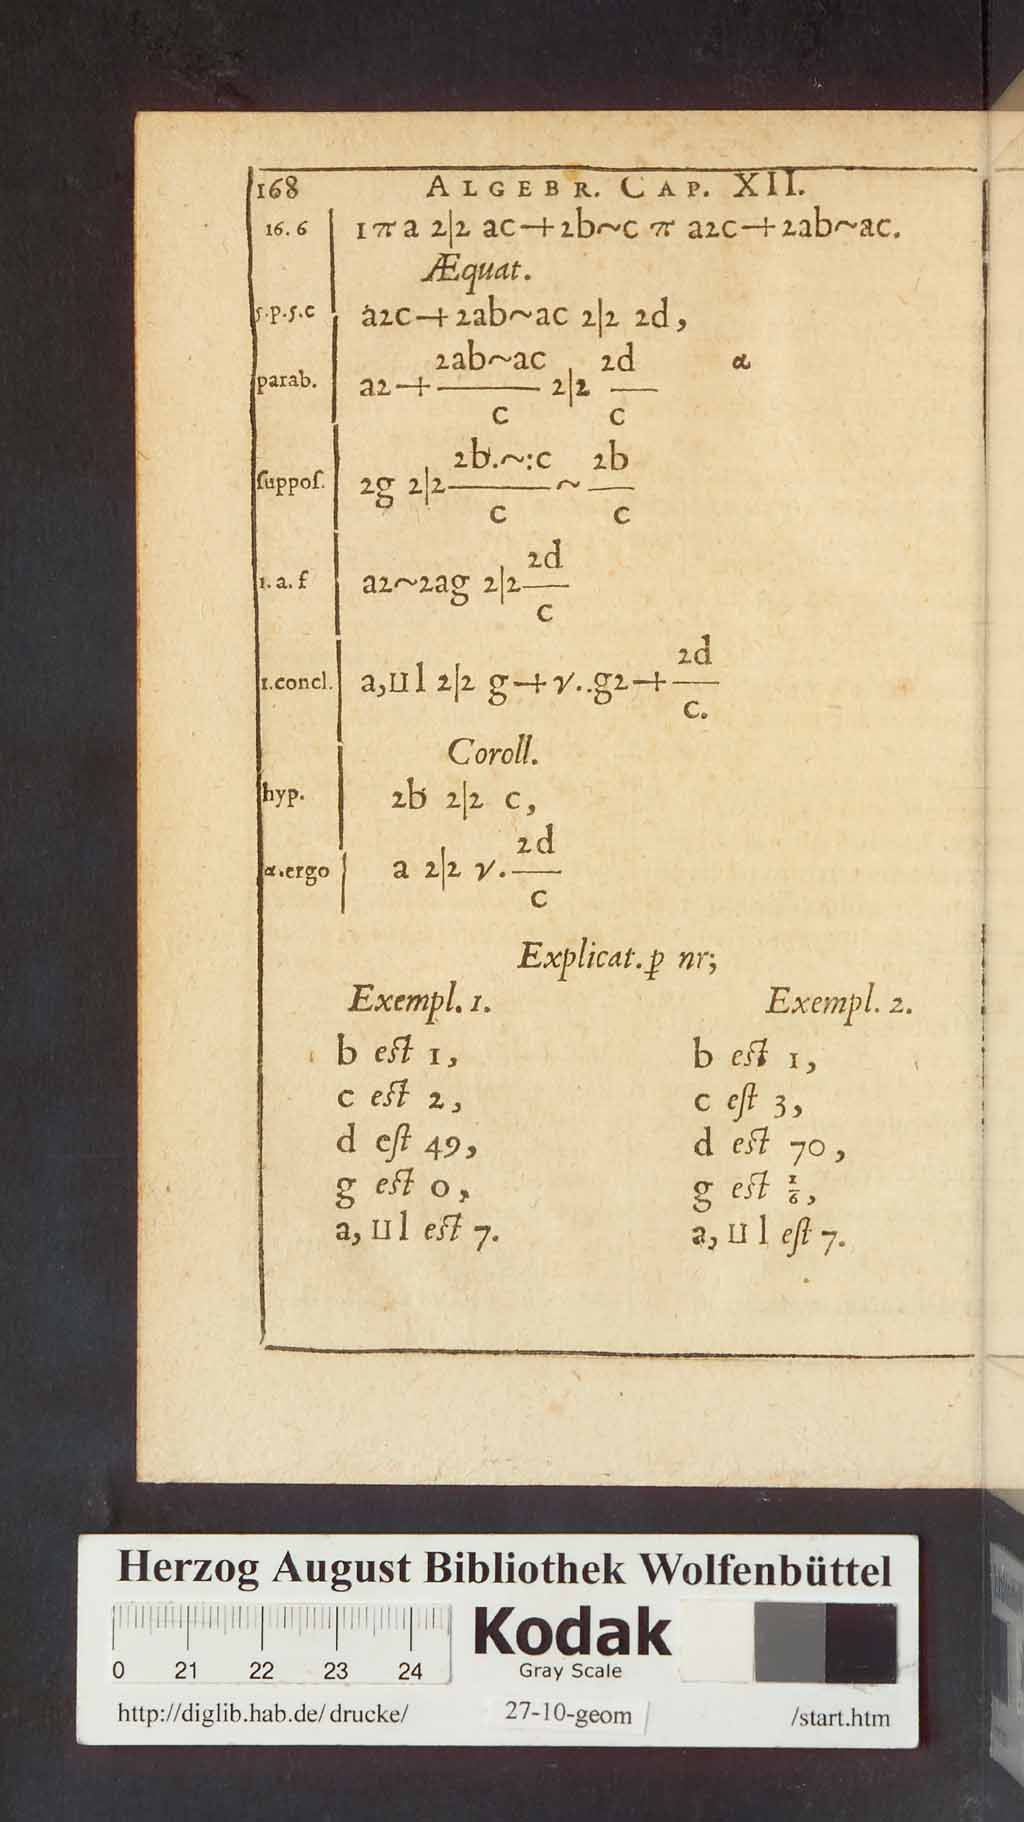 168 ALGEBR. CAP. XII.
16. 6 1 π a 2|2 ac+2b~c π a2c+2ab~ac.
Æquat.
5.p.5.c a2c+2ab~ac 2|2 2d,
2ab~ac 2d α
parab. a2+ ——— 2|2 ——
c c
2b.~:c 2b
ſuppoſ. 2g 2|2 ——— ~ ——
c c
2d
1. a. f a2~2ag 2|2 ——
c
2d
1.concl. a,ꓵl 2|2 g+√..g2+ ——
c.
Coroll.
hyp. 2b 2|2 c,
2d
α.ergo a 2|2 √. ——
c
Explicat.ꝑ nr;
Exempl. 1. Exempl. 2.
b eſt 1, b eſt 1,
c eſt 2, c eſt 3,
d eſt 49, d eſt 70,
g eſt 0, g eſt 1/6,
a, ꓵ l eſt 7. a, ꓵ l eſt 7.
Herzog August Bibliothek Wolfenbüttel
0 21 22 23 24
Kodak
Gray Scale
http://diglib.hab.de/drucke/ 27-10-geom /start.htm